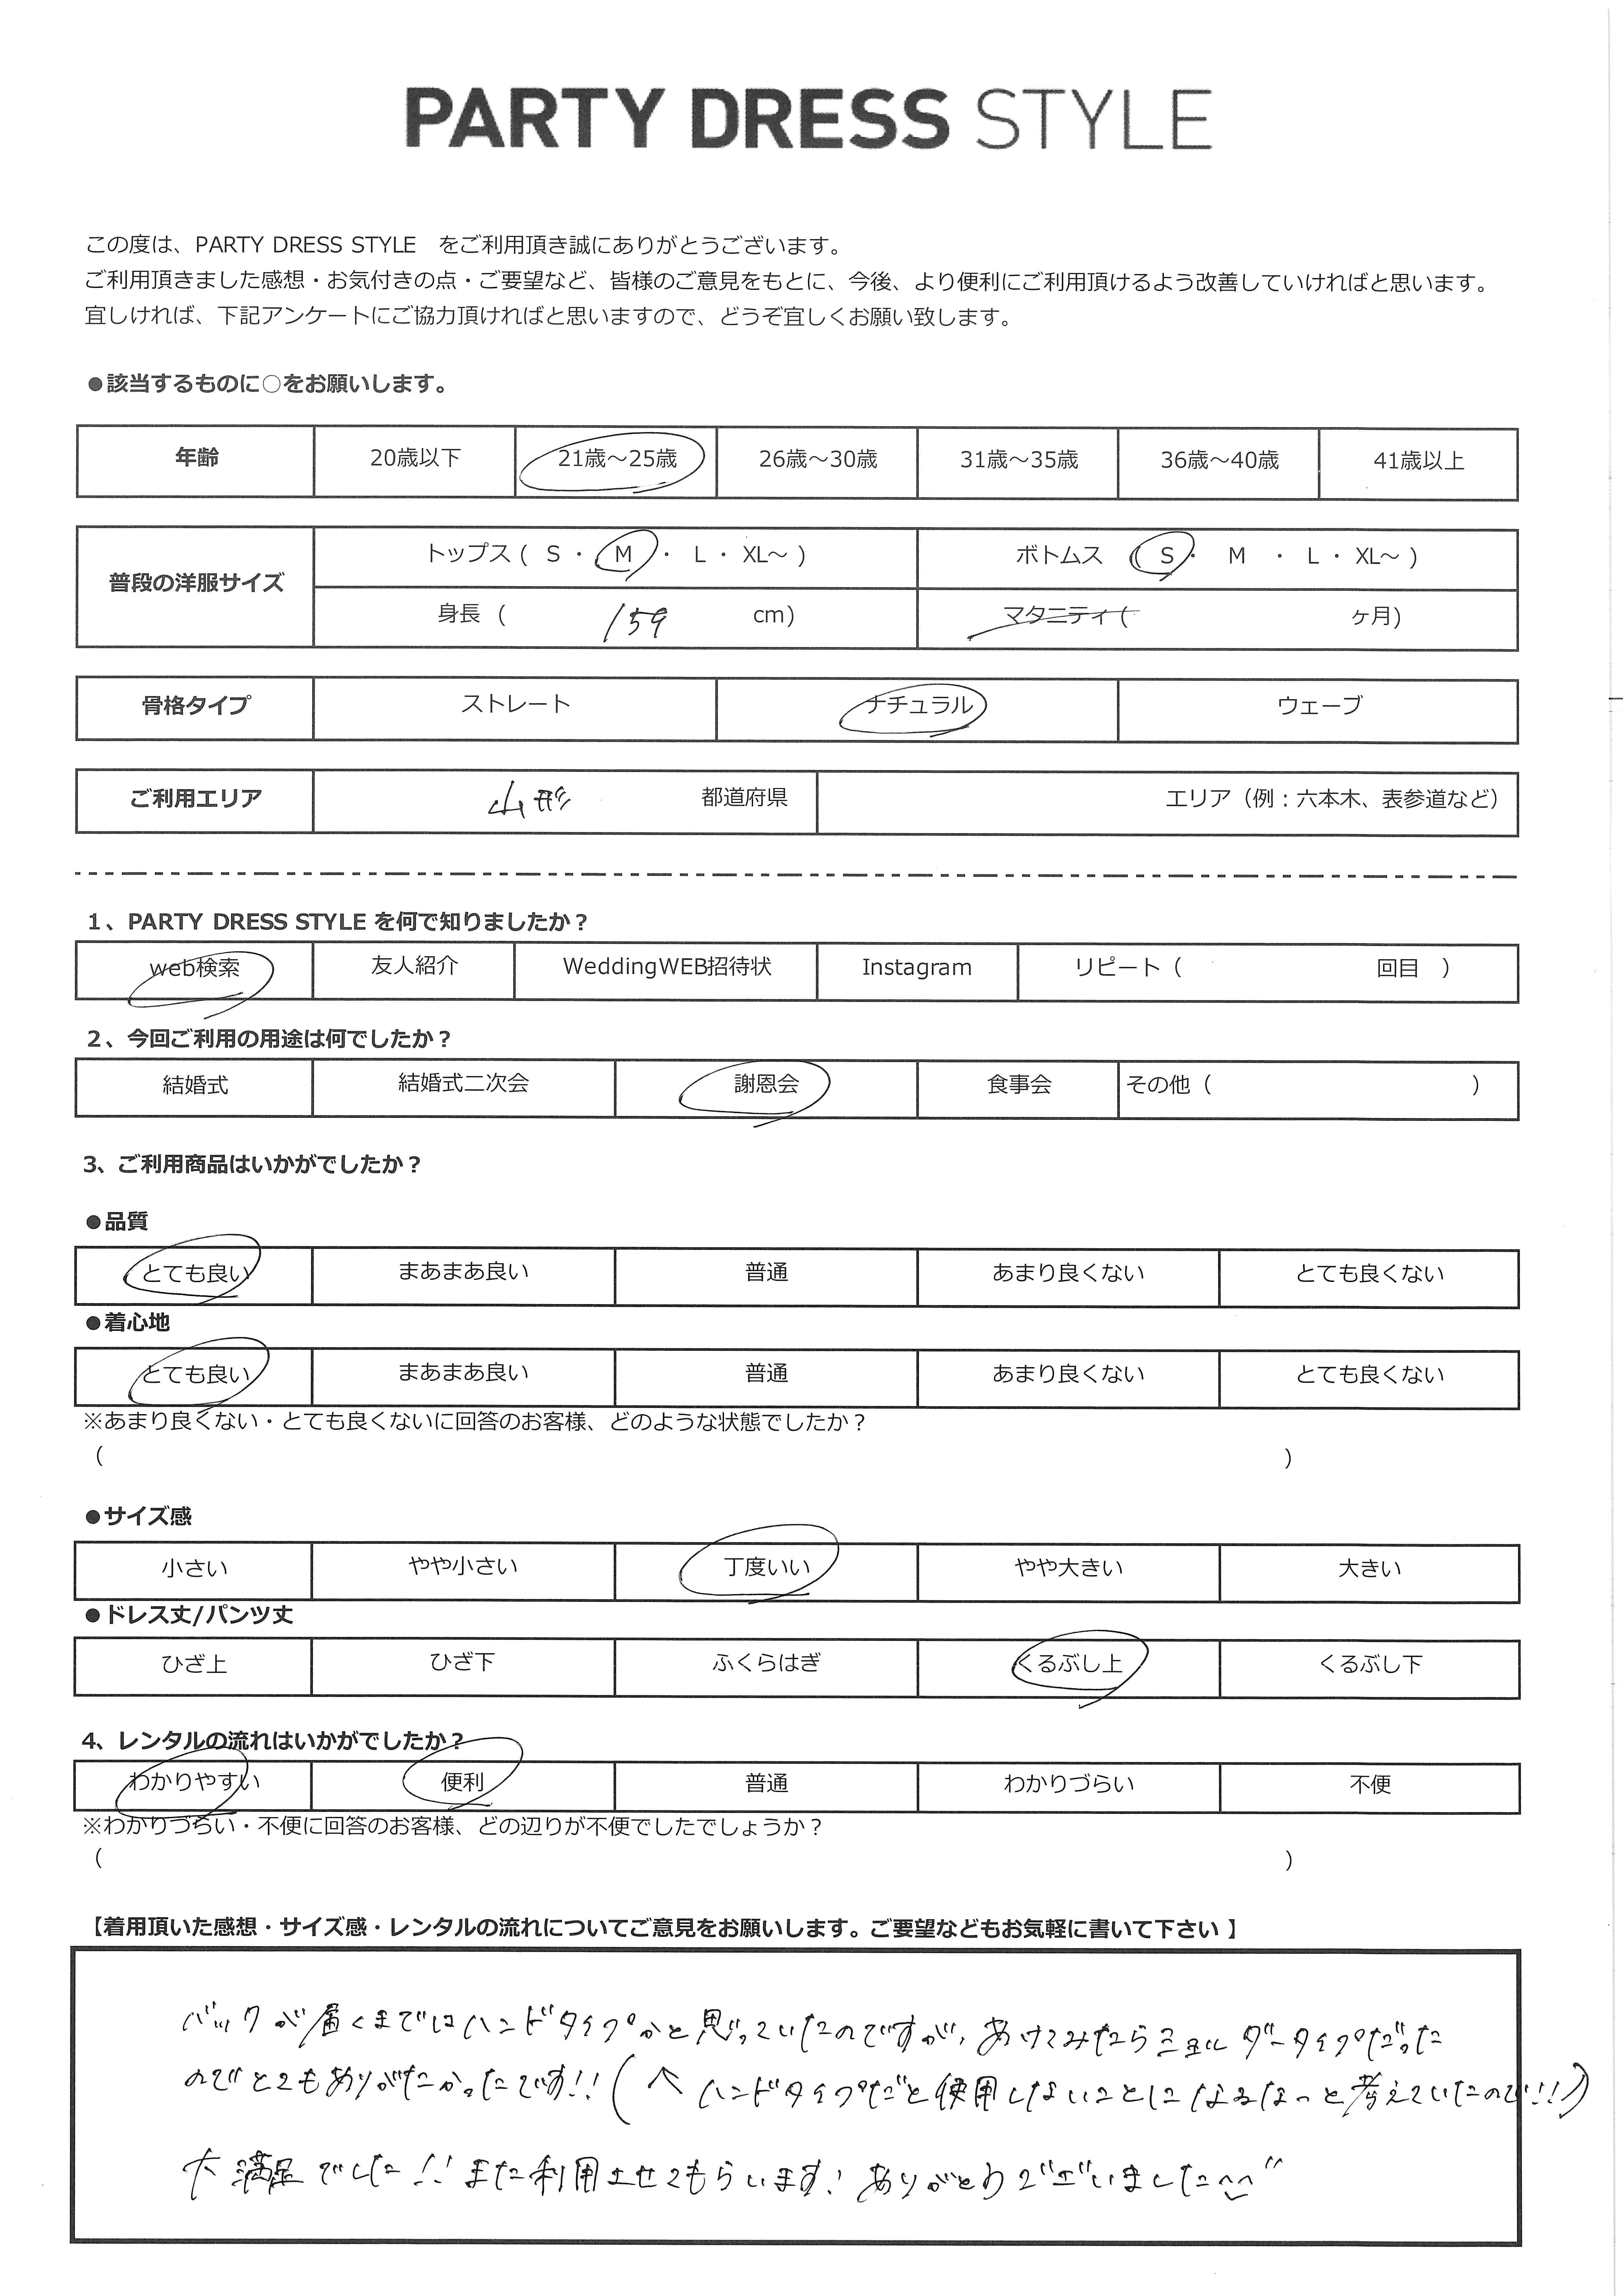 PARTY DRESS STYLE
この度は、PARTY DRESS STYLE をご利用頂き誠にありがとうございます。
ご利用頂きました感想・お気付きの点・ご要望など、皆様のご意見をもとに、今後、より便利にご利用頂けるよう改善していければと思います。
宜しければ、下記アンケートにご協力頂ければと思いますので、どうぞ宜しくお願い致します。
●該当するものに○をお願いします。
年齢 20歳以下 21歳～25歳 26歳～30歳 31歳～35歳 36歳～40歳 41歳以上
普段の洋服サイズ トップス ( S ・ M ・ L ・ XL～ ) ボトムス ( S ・ M ・ L ・ XL～ )
身長 ( 159 cm) マタニティ ( ヶ月)
骨格タイプ ストレート ナチュラル ウェーブ
ご利用エリア 山形 都道府県 エリア（例：六本木、表参道など）
1、PARTY DRESS STYLE を何で知りましたか？
web検索 友人紹介 WeddingWEB招待状 Instagram リピート（ 回目 ）
2、今回ご利用の用途は何でしたか？
結婚式 結婚式二次会 謝恩会 食事会 その他（ ）
3、ご利用商品はいかがでしたか？
●品質
とても良い まあまあ良い 普通 あまり良くない とても良くない
●着心地
とても良い まあまあ良い 普通 あまり良くない とても良くない
※あまり良くない・とても良くないに回答のお客様、どのような状態でしたか？
（ ）
●サイズ感
小さい やや小さい 丁度いい やや大きい 大きい
●ドレス丈/パンツ丈
ひざ上 ひざ下 ふくらはぎ くるぶし上 くるぶし下
4、レンタルの流れはいかがでしたか？
わかりやすい 便利 普通 わかりづらい 不便
※わかりづらい・不便に回答のお客様、どの辺りが不便でしたでしょうか？
（ ）
【着用頂いた感想・サイズ感・レンタルの流れについてご意見をお願いします。ご要望などもお気軽に書いて下さい 】
バックが届くまではハンドタイプかと思っていたのですが、あけてみたらショルダータイプだった
のでとてもありがたかったです!! (へ ハンドタイプだと使用しないことになるなっと考えていたので!!)
大満足でした!! また利用させてもらいます! ありがとうございました^^